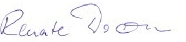 Renate Doom